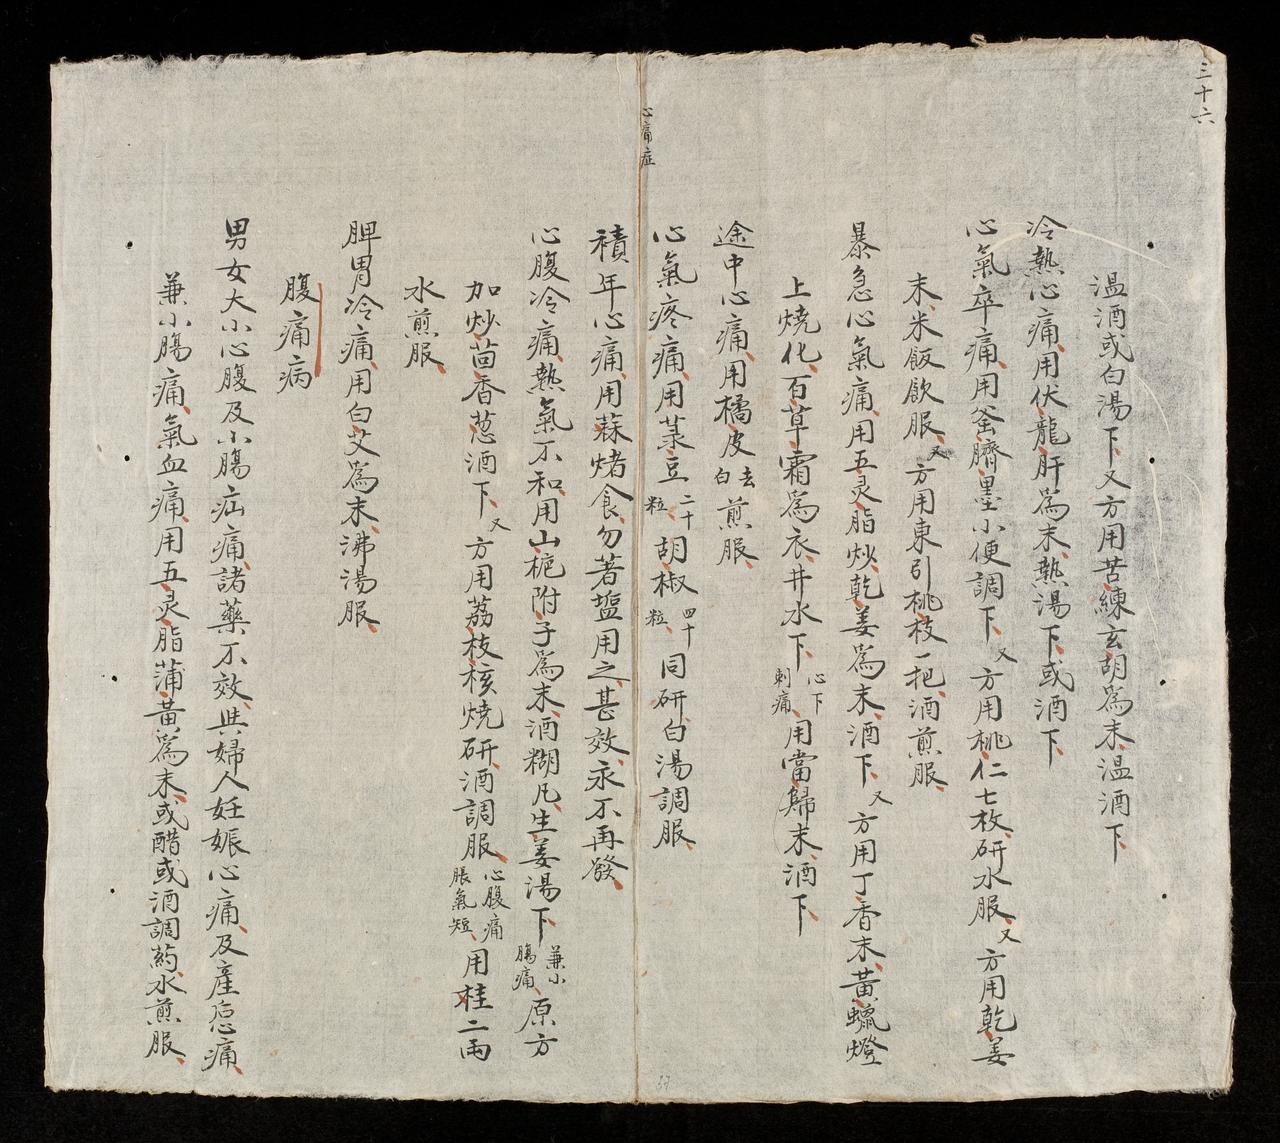 三十六
溫酒或白湯下又方用苦練玄胡為末溫酒下
冷熱心痛用伏龍肝為末熱湯下或酒下
心氣卒痛用釜臍墨小便調下又方用桃仁七枚研水服又方用乾姜
末米飯飲服又方用東引桃枝一把酒煎服
暴急心氣痛用五灵脂炒乾姜為末酒下又方用丁香末黃蠟燈
上燒化百草霜為衣井水下心下刺痛用當歸末酒下
途中心痛用橘皮去白煎服
心痛症
心氣疼痛用菉豆二十粒胡椒四十粒同研白湯調服
積年心痛用蒜㶶食勿著塩用之甚效永不再發
心腹冷痛熱氣不和用山梔附子為末酒糊凡生姜湯下兼小腸痛原方
加炒茴香葱酒下又方用荔枝核燒研酒調服心腹痛脹氣短用桂二兩
水煎服
脾胃冷痛用白艾為末沸湯服
腹痛病
男女大小心腹及小腸疝痛諸藥不效與婦人妊娠心痛及產後痛
兼小腸痛氣血痛用五灵脂蒲黃為末或醋或酒調葯水煎服
37